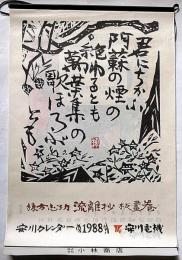 君にちかふ
阿蘇の煙の
絶ゆるとも
萬葉集の
歌ほろぶ
とも
棟方志功 流離抄 板画巻
安川カレンダー 1988 安川電機
小林商店